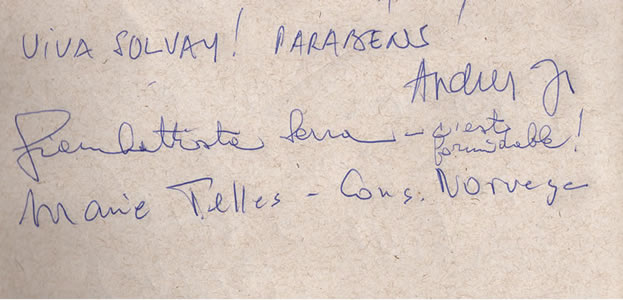 VIVA SOLVAY! PARABENS!
Andres Jr
Giambattista Serra - c'est
formidable!
Marie Telles - Cons. Norvege